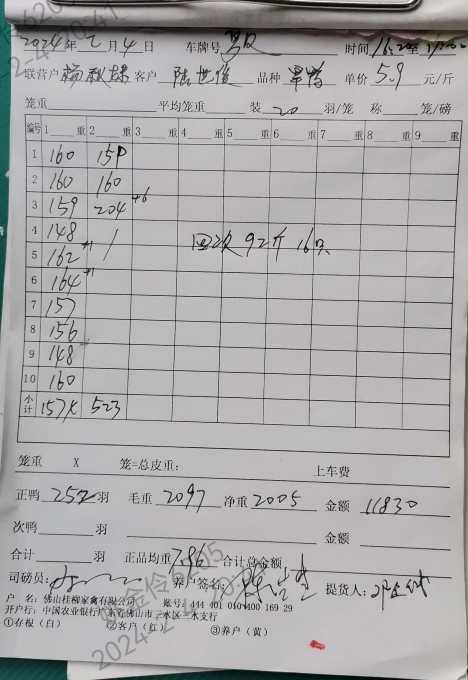 2024年2月4日 车牌号 男 时间 16:20至
联营户 杨 客户 陆世俊 品种 旱鸭 单价 5.9 元/斤
笼重 平均笼重 装 20 羽/笼 称 笼/磅
编号 1 重 2 重 3 重 4 重 5 重 6 重 7 重 8 重 9 重
1 160 159
2 160 160
3 159 204 +6
4 148
回次 92斤 16只
5 162 +1
6 164 +1
7 157
8 156
9 148
10 160
小计 1574 523
笼重 X 笼=总皮重: 上车费
正鸭 252 羽 毛重 2097 净重 2005 金额 11830
次鸭 羽 金额
合计 羽 正品均重 7.96 合计总金额
司磅员: 养户签名: 提货人:
户 名: 佛山桂柳家禽有限公司 账号: 444 401 010 400 169 29
开户行: 中国农业银行广东省佛山市三水区三水支行
①存根(白) ②客户(红) ③养户(黄)